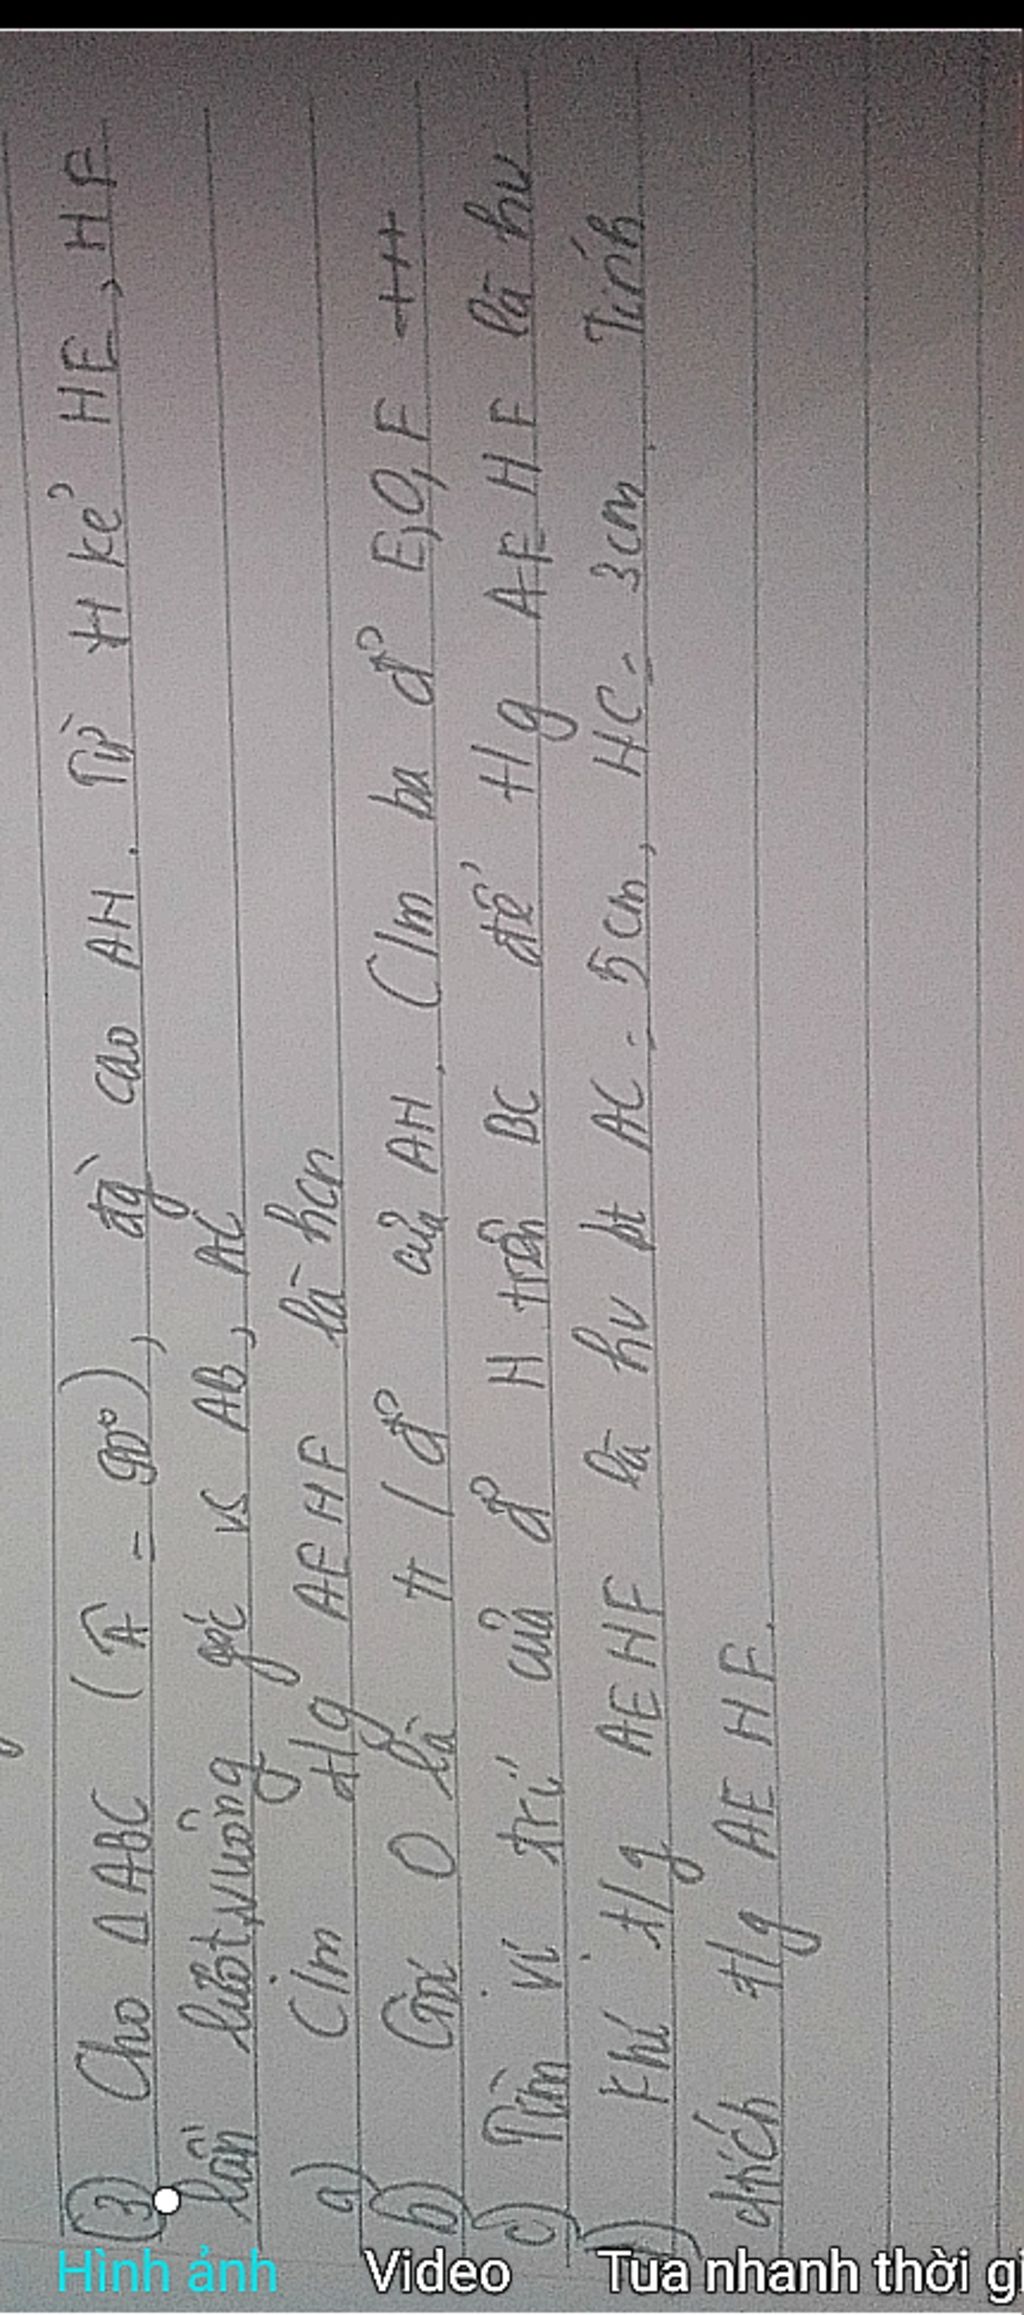 3) Cho Δ ABC (Â = 90°), đg` cao AH. Từ H kẻ HE, HF
lần lượt vuông góc vs AB, AC
a) C/m t/g AEHF là hcn
b) Gọi O là tr/đ² của AH. C/m ba đ² E, O, F tH
c) Tìm vị trí của đ² H trên BC để t/g AEHF là hv
d) Khi t/g AEHF là hv bt AC = 5cm, HC = 3cm. Tính
dtích t/g AEHF.
Hình ảnh
Video
Tua nhanh thời gi